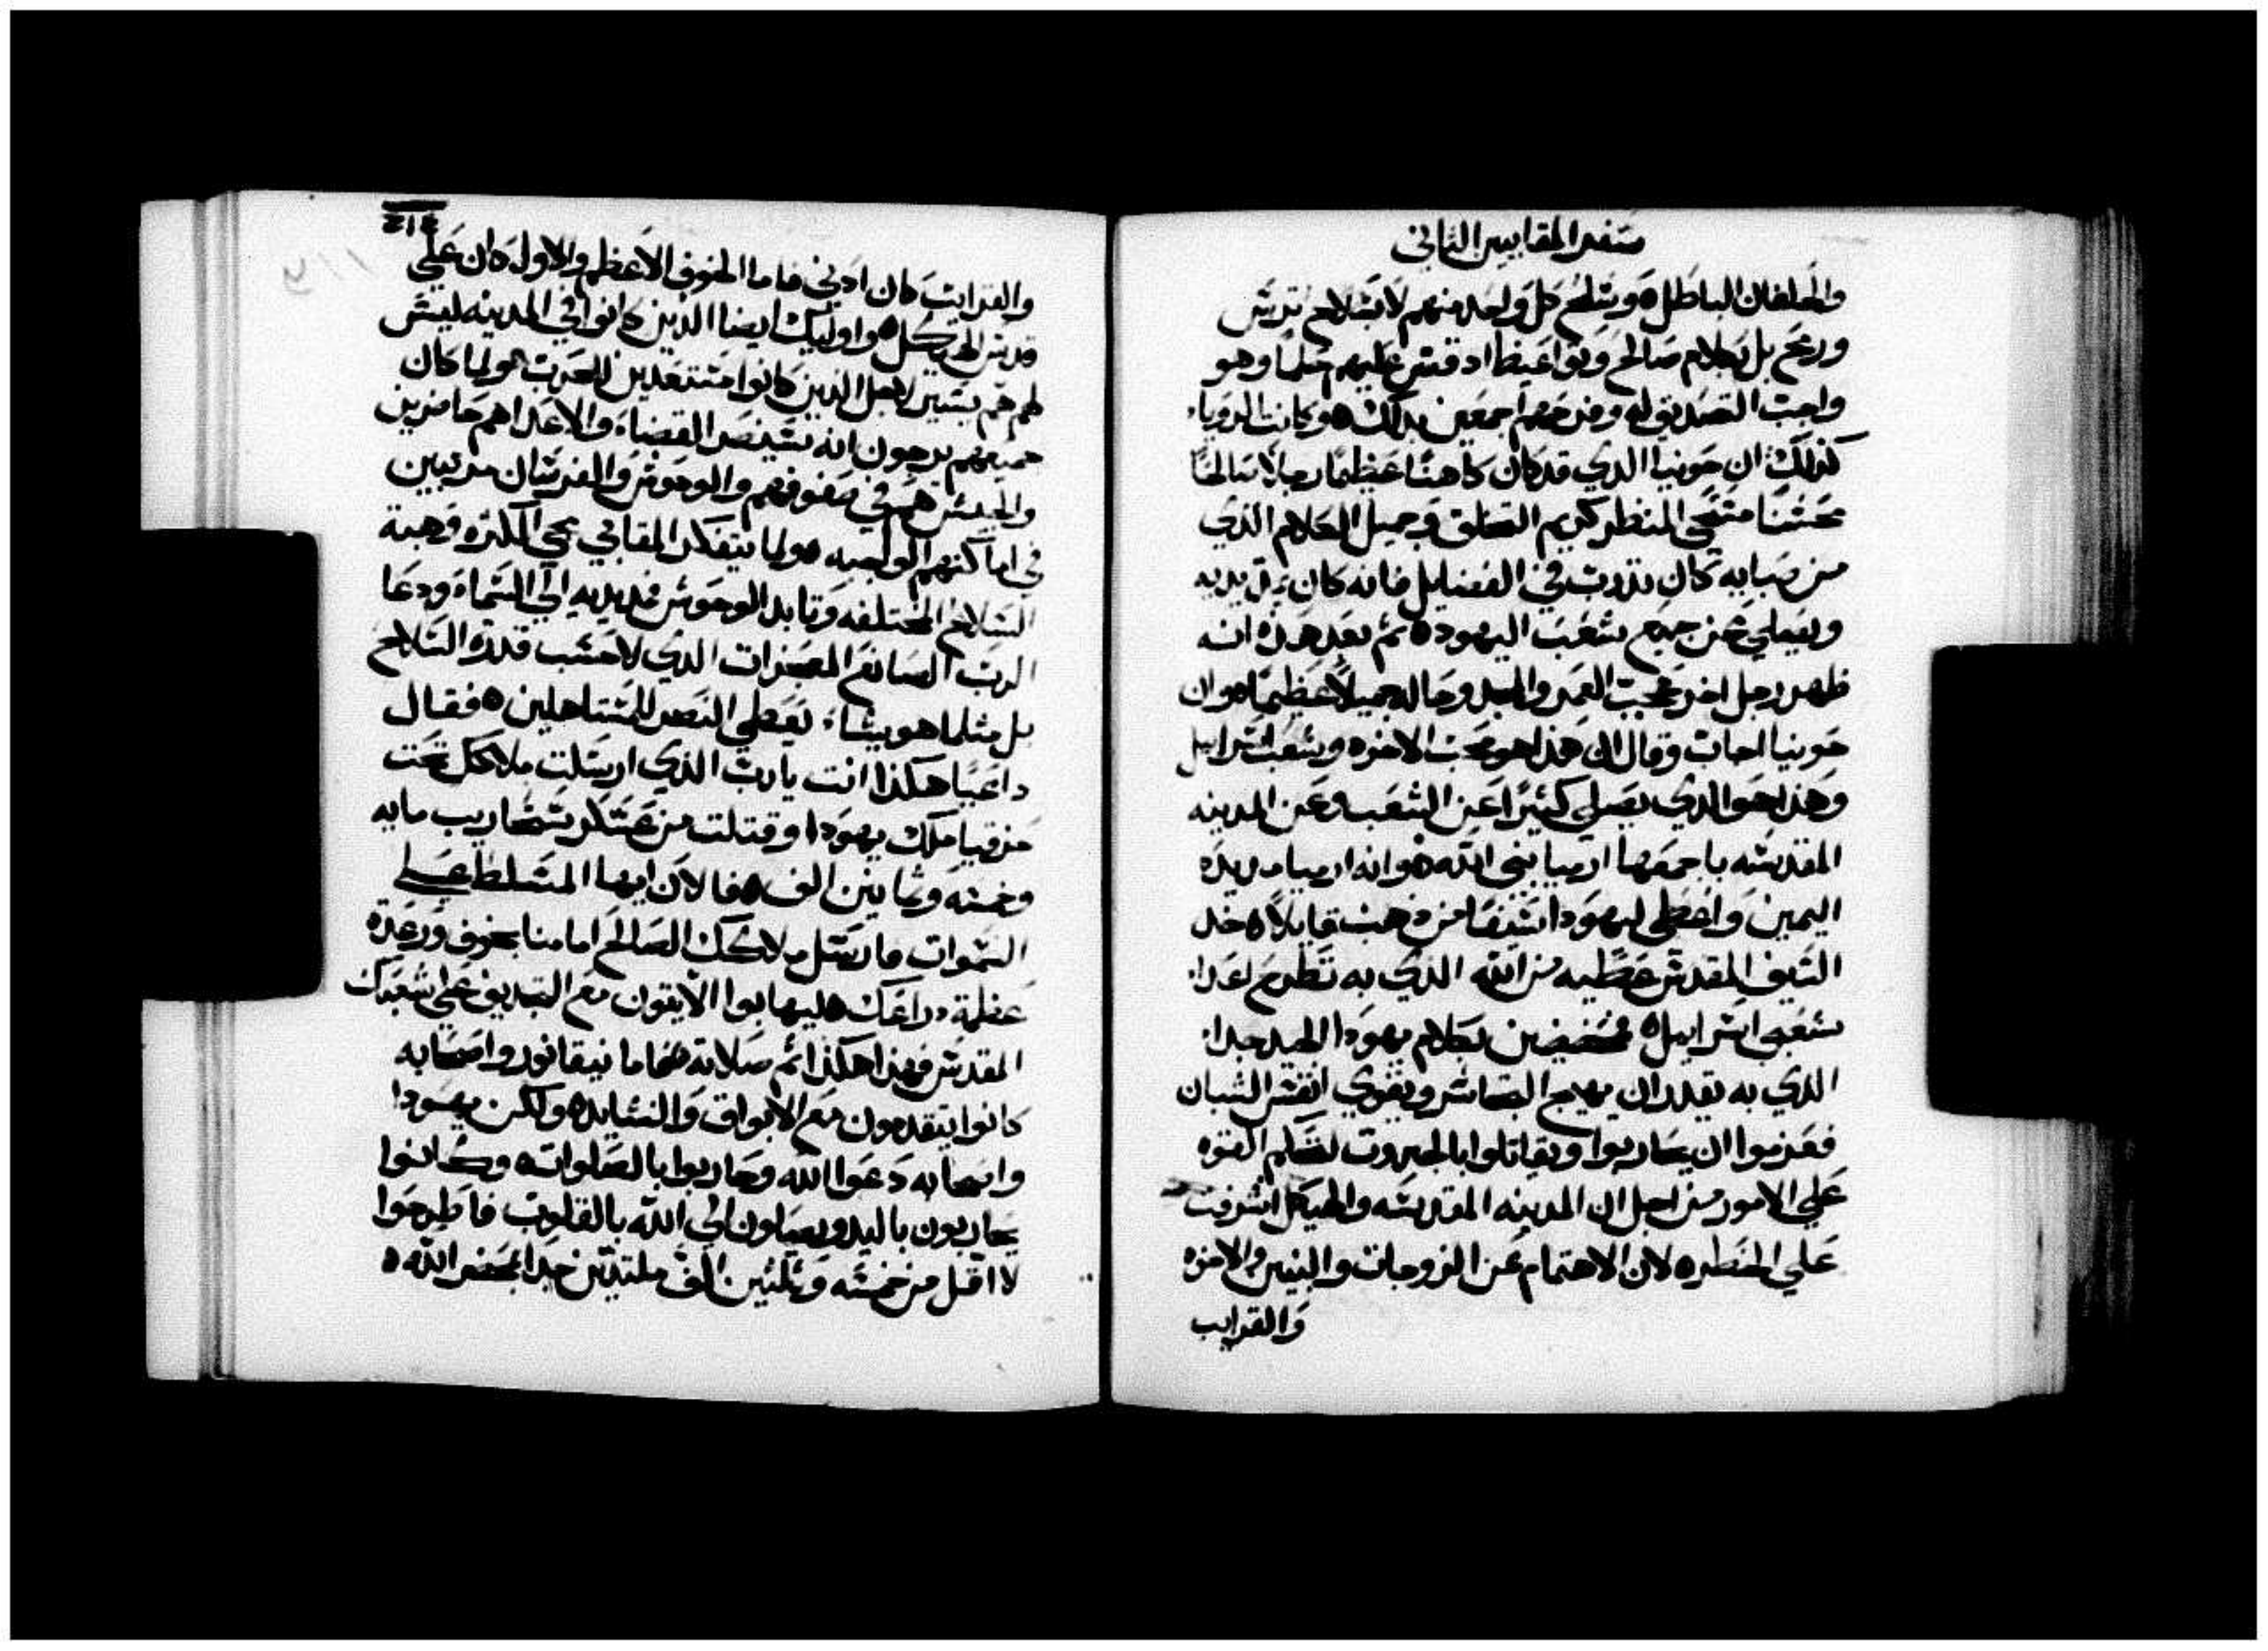 سفر المقابيين الثاني
والحلفان الباطل ٥ وسلح كل واحد منهم لا بسلاح ترس
ورمح بل بكلام صالح ومواعيظ اد قص عليهم حلما وهو
واجب التصديق له وفرحهم اجمعين بدلك ٥ وكانت الرويا
كذلك ان حونيا الدي قد كان كاهنا عظيما رجلا صالحا
محتشما متضحي المنظر كريم التخلق وجميل الكلام الذي
من صبايه كان تدرب في الفضايل فانه كان يمد يديه
ويصلي عن جميع شعب اليهود ٥ ثم بعد هذه انه
ظهر رجل اخر عجيب العمر والمجد وحاله جميلا عظيما ٥ وان
حونيا اجاب وقال ان هذا هو محب الاخوه وشعب اسرايل
وهذا هو الذي يصلي كثيرا عن الشعب وعن المدينه
المقدسه باجمعها ارميا نبي الله ٥ وانه ارميا مد يده
اليمين واعطى ليهودا سيفا من ذهب قايلا ٥ خد
السيف المقدس عطيه من الله الذي به تطرح اعدا
شعبي اسراييل ٥ فمتحضضين بكلام يهودا الجيد جدا
الذي به يقدر ان يهيج الحماس ويقوي انفس الشبان
فعزموا ان يحاربوا ويقاتلوا بالجبروت لتحكم القوه
علي الامور من اجل ان المدينه المقدسه والهيكل اشرفت
علي الخطره لان الاهتمام عن الزوجات والبنين والاخوه
والقرايب
٤١٤
والقرايب كان ادني فاما الخوف الاعظم والاول كان علي
قدس الهيكل ٥ واوليك ايضا الذين كانوا في المدينه ليس
لهم هم يسير لاجل الذين كانوا مستعدين للحرب ٥ ولما كان
جميعهم يرجون انه سيصير القضاء والاعدا هم حاضرين
والجيش هم في صفوفهم والوحوش والفرسان مرتبين
في اماكنهم الواجبه ٥ ولما يتفكر المقابي مجي الكتره وهبة
السلاح المختلفه وتابد الوحوش فمد يديه الي السماء ودعا
الرب الصانع المعجزات الذي لا حسب قدرة السلاح
بل مثلما هو يشاء يعطي النصر للمستاهلين ٥ فقال
داعيا هكذا انت يا رب الذي ارسلت ملاكك تحت
حزقيا ملك يهودا وقتلت من عسكر سنحاريب مايه
وخمسه وثمانين الف ٥ فالان ايها المتسلط علي
السموات فارسل ملاكك الصالح امامنا بخوف ورعدة
عظمة دراعك فليهابوا الايقون مع التجديف علي شعبك
المقدس فهذا هكذا اتم صلاته ٥ فاما نيقانور واصحابه
كانوا يتقدمون مع الابواق والنشايد ٥ ولكن يهودا
واصحابه دعوا الله وحاربوا بالصلوات ٥ وكانوا
يحاربون باليد ويصلون الي الله بالقلوب فاطرحوا
لا اقل من خمسه وثلثين الف ملتدين جدا بمحضر الله ٥